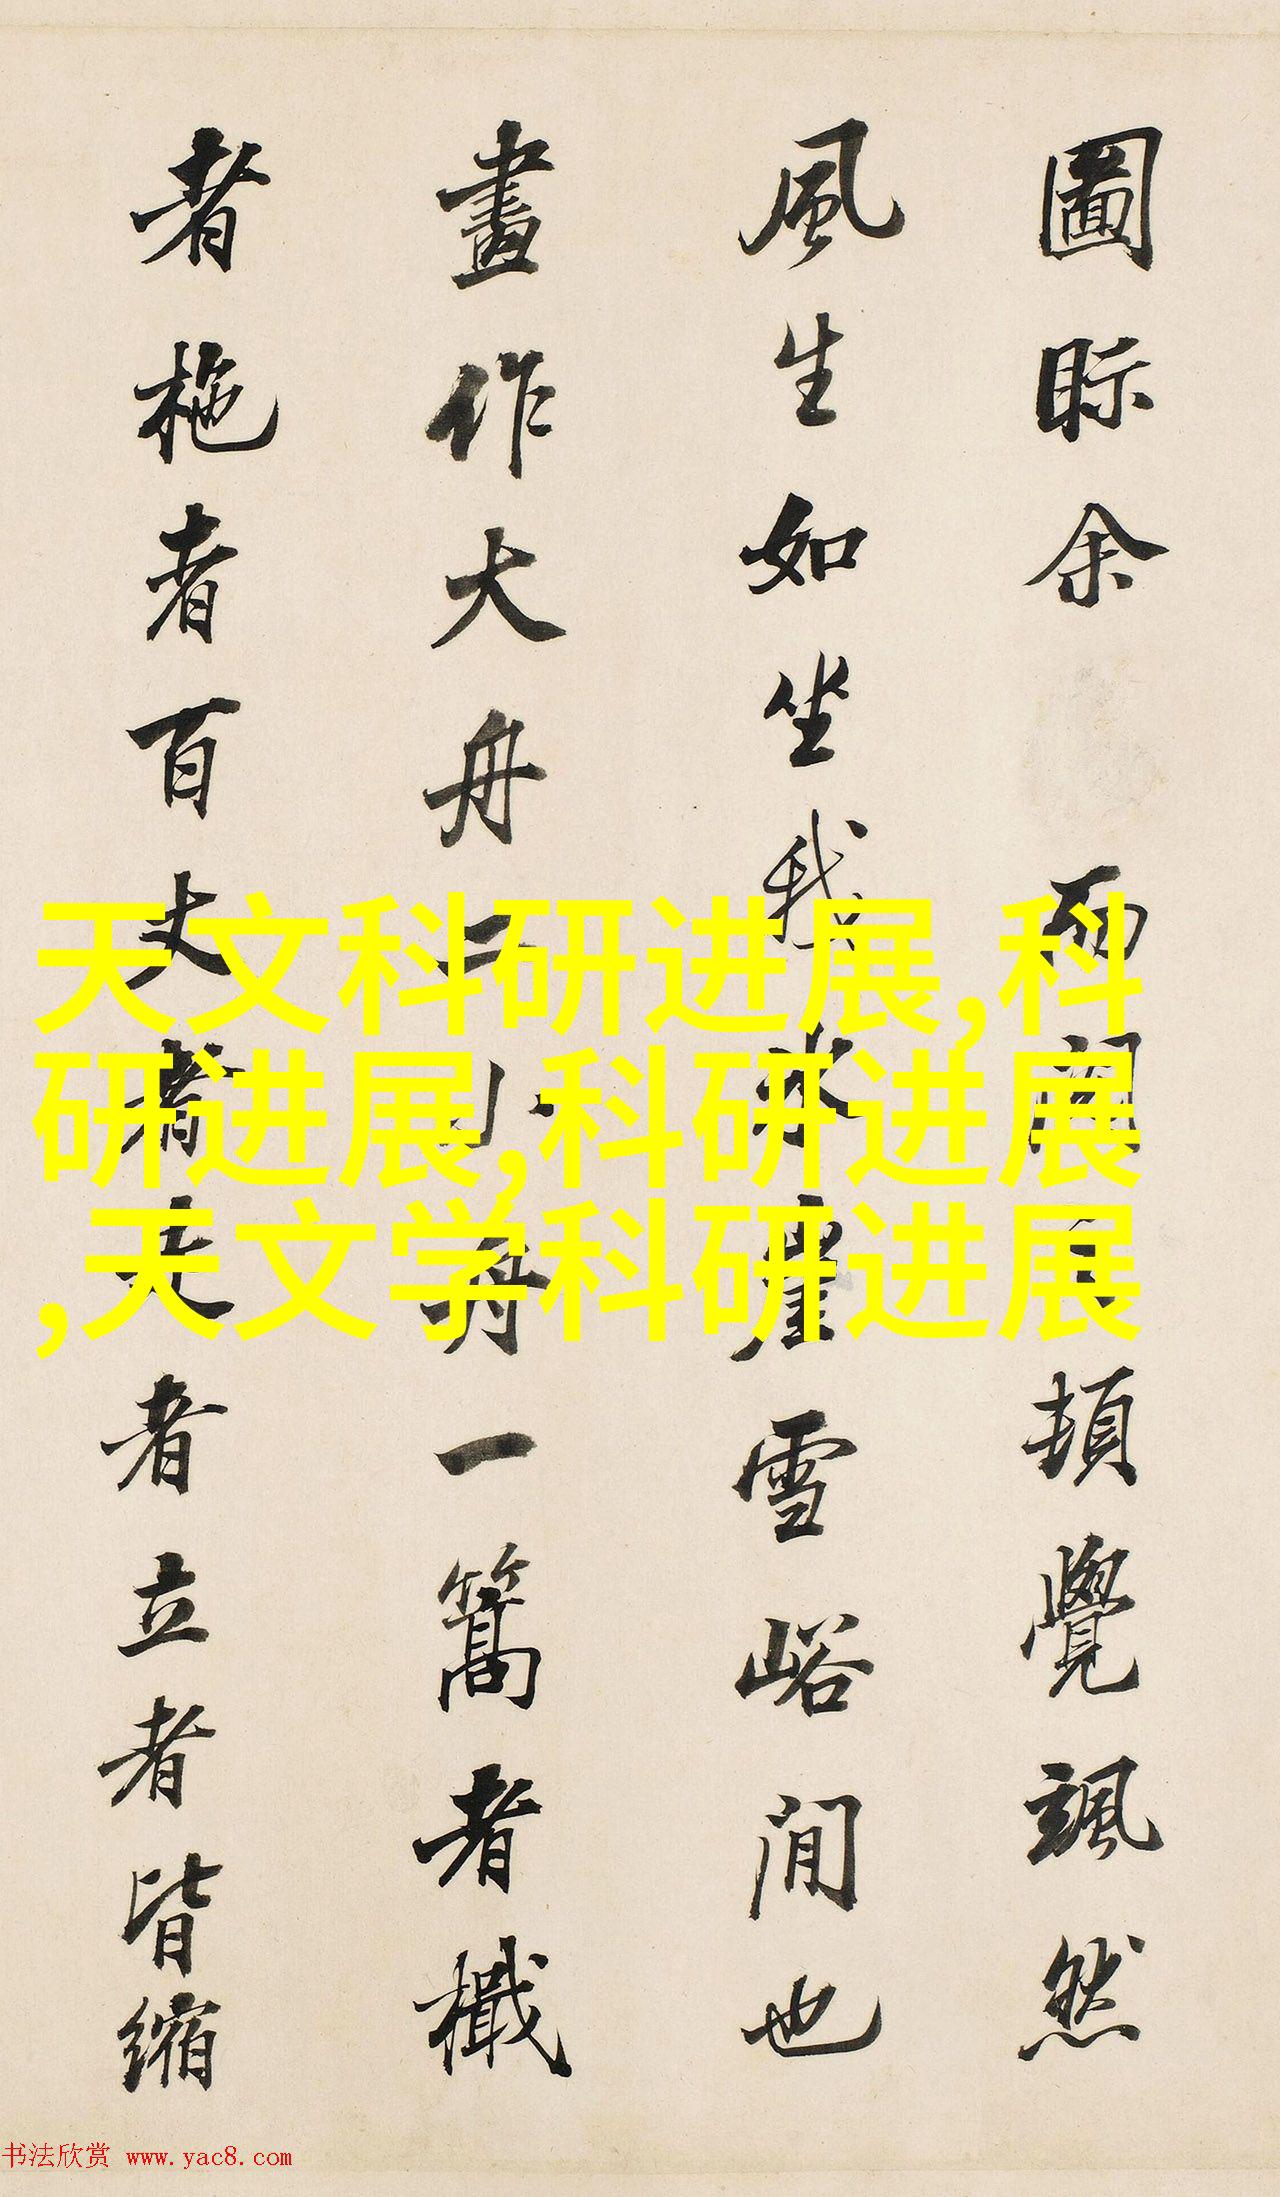 圖眎余而頓覺颯然
風生如坐我冰崖雪峪間也
畫作大舟二小舟一篙者檝
者柂者百丈者者立者皆縮
天文科研进展,科
研进展,科研进展
,天文学科研进展
书法欣赏 www.yac8.com